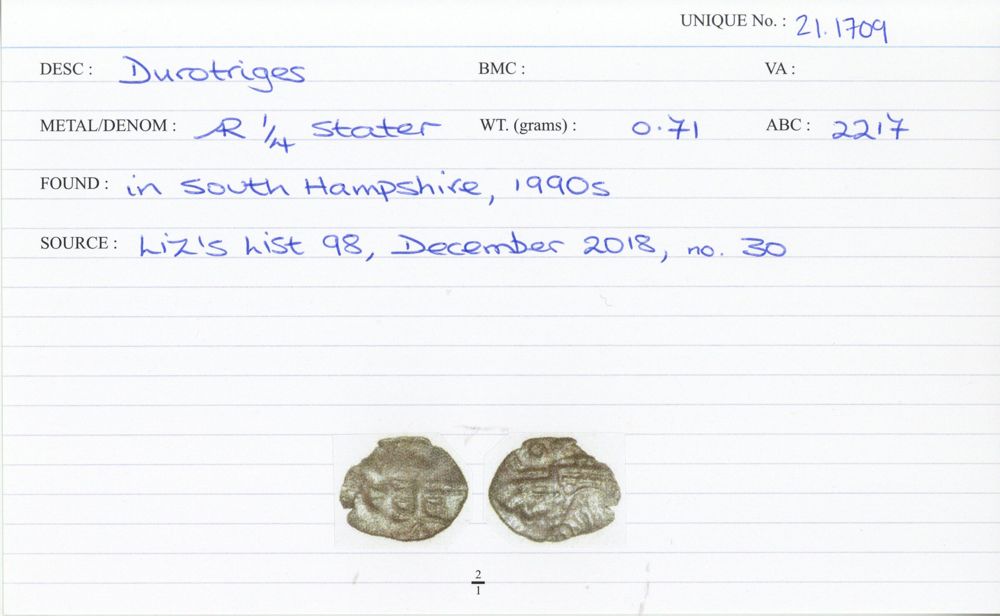 UNIQUE No. : 21.1709
DESC : Durotriges BMC : VA :
METAL/DENOM : AR 1/4 Stater WT. (grams) : 0.71 ABC : 2217
FOUND : in South Hampshire, 1990s
SOURCE : Liz's List 98, December 2018, no. 30
2/1